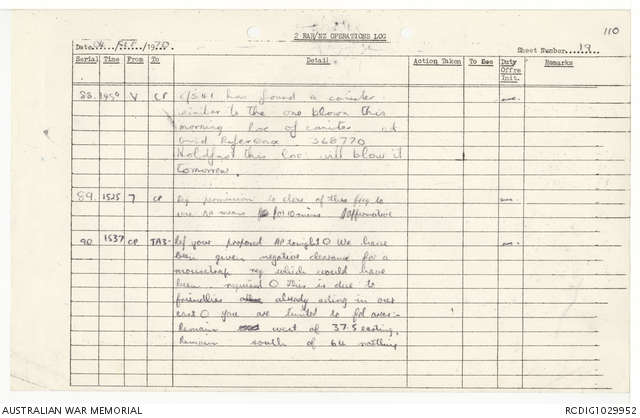 110
2 RAR/NZ OPERATIONS LOG
Date 1970
Sheet Number 19
Serial Time From To Detail Action Taken To Dec Duty Offrs Init. Remarks
88. V CP C/S41 has found a canister
similar to the one blown this
morning loc of canister at
Grid Reference 368770
Holdfast this loc will blow it
tomorrow.
89. 1525 7 CP Req permission to close of this freq to
use for 10 mins Affirmative
90 1537 CP TA3- Ref your proposed AP tonight O We have
been given negative clearance for a
mousetrap req which would have
been required O This is due to
friendlies already acting in over
east O you are limited to fol area:-
Remain west of 37.5 easting.
Remain south of 64 northing
AUSTRALIAN WAR MEMORIAL
RCDIG1029952